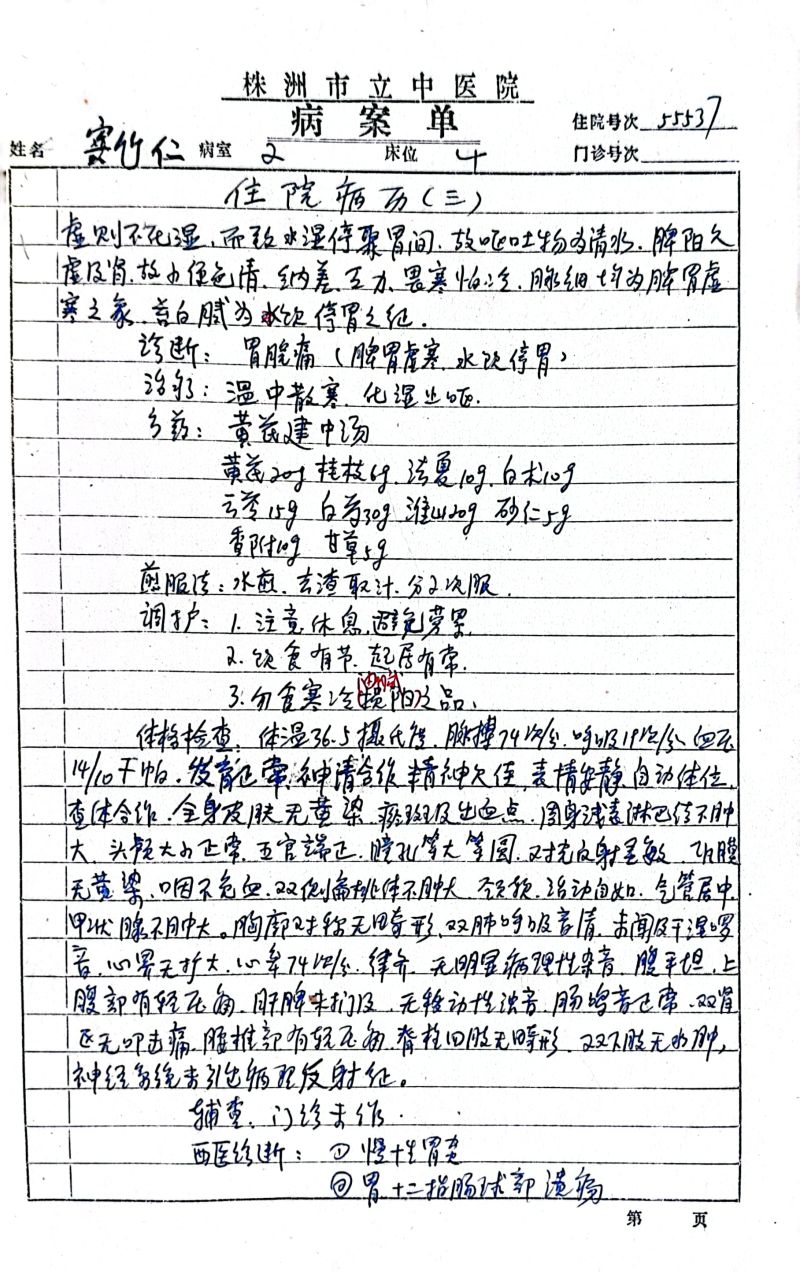 株洲市立中医院
病案单
住院号次 55537
姓名 竹仁 病室 2 床位 4 门诊号次
住院病历(三)
虚则不化湿,而致水湿停聚胃间,故呕吐物为清水,脾阳久
虚及肾,故小便色清、纳差、乏力、畏寒怕冷、脉细均为脾胃虚
寒之象,苔白腻为水饮停胃之征.
诊断:胃脘痛(脾胃虚寒、水饮停胃)
治疗:温中散寒、化湿止呕.
方药:黄芪建中汤
黄芪20g 桂枝6g、法夏10g、白术10g
云苓15g 白芍30g 淮山20g 砂仁5g
香附10g 甘草5g
煎服法:水煎、去渣取汁、分2次服.
调护:1.注意休息,避免劳累.
2.饮食有节、起居有常.
3.勿食寒冷损阳之品.
体格检查:体温36.5摄氏度、脉搏74次/分、呼吸19次/分、血压
14/10千帕。发育正常、神清合作、精神欠佳,表情安静,自动体位,
查体合作、全身皮肤无黄染、瘀斑及出血点、周身浅表淋巴结不肿
大、头颅大小正常、五官端正、瞳孔等大等圆、对光反射灵敏、巩膜
无黄染、咽不充血、双侧扁桃体不肿大、颈软、活动自如、气管居中、
甲状腺不肿大。胸廓对称无畸形、双肺呼吸音清、未闻及干湿啰
音、心界无扩大、心率74次/分、律齐、无明显病理性杂音、腹平坦、上
腹部有轻压痛、肝脾未扪及、无移动性浊音、肠鸣音正常、双肾
区无叩击痛、腰椎部有轻压痛、脊柱四肢无畸形、双下肢无水肿,
神经系统未引出病理反射征。
辅查:门诊未作.
西医诊断:①慢性胃炎
②胃十二指肠球部溃疡
第 页